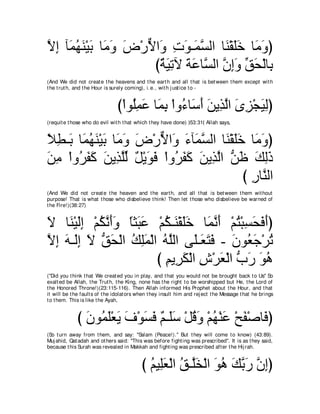 (وَمَا خَلَقْنَا السَّمَـوَتِ وَالاٌّرْضَ وَمَا بَيْنَهُمَآ إِلاَّ
بِالْحَقِّ وَإِنَّ السَّاعَةَ لآَتِيَةٌ)
(And We did not create the heavens and the earth and all that is between them except with the truth, and the Hour is surely coming), i.e., with justice to -
(لِيَجْزِىَ الَّذِينَ أَسَاءُواْ بِمَا عَمِلُواْ)
(requite those who do evil with that which they have done) (53:31) Allah says,
(وَمَا خَلَقْنَا السَّمَآءَ وَالاٌّرْضَ وَمَا بَيْنَهُمَا بَـطِلاً
ذَلِكَ ظَنُّ الَّذِينَ كَفَرُواْ فَوَيْلٌ لِّلَّذِينَ كَفَرُواْ مِنَ
النَّارِ )
(And We did not create the heaven and the earth, and all that is between them without purpose! That is what those who disbelieve think! Then let those who disbelieve be warned of the Fire!)(38:27)
(أَفَحَسِبْتُمْ أَنَّمَا خَلَقْنَـكُمْ عَبَثاً وَأَنَّكُمْ إِلَيْنَا لاَ
تُرْجَعُونَ - فَتَعَـلَى اللَّهُ الْمَلِكُ الْحَقُّ لاَ إِلَـهَ إِلاَّ
هُوَ رَبُّ الْعَرْشِ الْكَرِيمِ )
("Did you think that We created you in play, and that you would not be brought back to Us'' So exalted be Allah, the Truth, the King, none has the right to be worshipped but He, the Lord of the Honored Throne!)(23:115-116). Then Allah informed His Prophet about the Hour, and that it will be the faults of the idolators when they insult him and reject the Message that he brings to them. This is like the Ayah,
(فَاصْفَحْ عَنْهُمْ وَقُلْ سَلَـمٌ فَسَوْفَ يَعْلَمُونَ )
(So turn away from them, and say: "Salam (Peace!).'' But they will come to know) (43:89). Mujahid, Qatadah and others said: "This was before fighting was prescribed''. It is as they said, because this Surah was revealed in Makkah and fighting was prescribed after the Hijrah.
(إِنَّ رَبَّكَ هُوَ الْخَلَّـقُ الْعَلِيمُ )